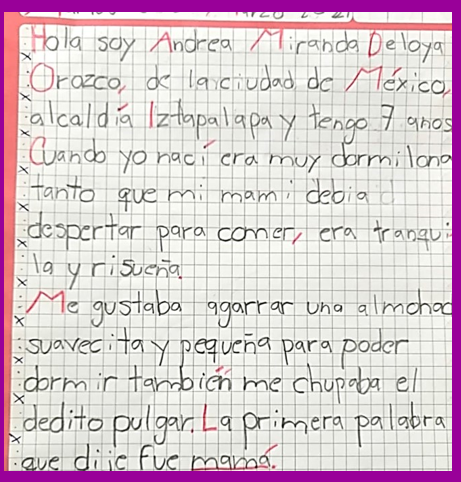 Hola soy Andrea Miranda Deloya
Orozco, de la ciudad de México,
alcaldía Iztapalapa y tengo 7 anos
Cuando yo nací era muy dormilona
tanto que mi mami debia
despertar para comer, era tranqui
la y risueña.
Me gustaba agarrar una almohad
suavecita y pequeña para poder
dormir también me chupaba el
dedito pulgar. La primera palabra
que dije fue mamá.